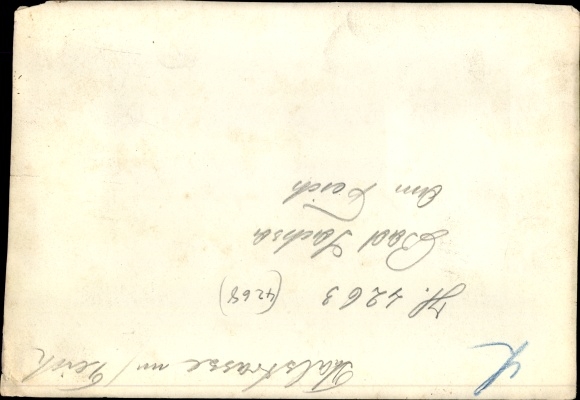 Talstrasse m/Teich
H. 4263 (4264)
Bad Sachsa
Am Teich